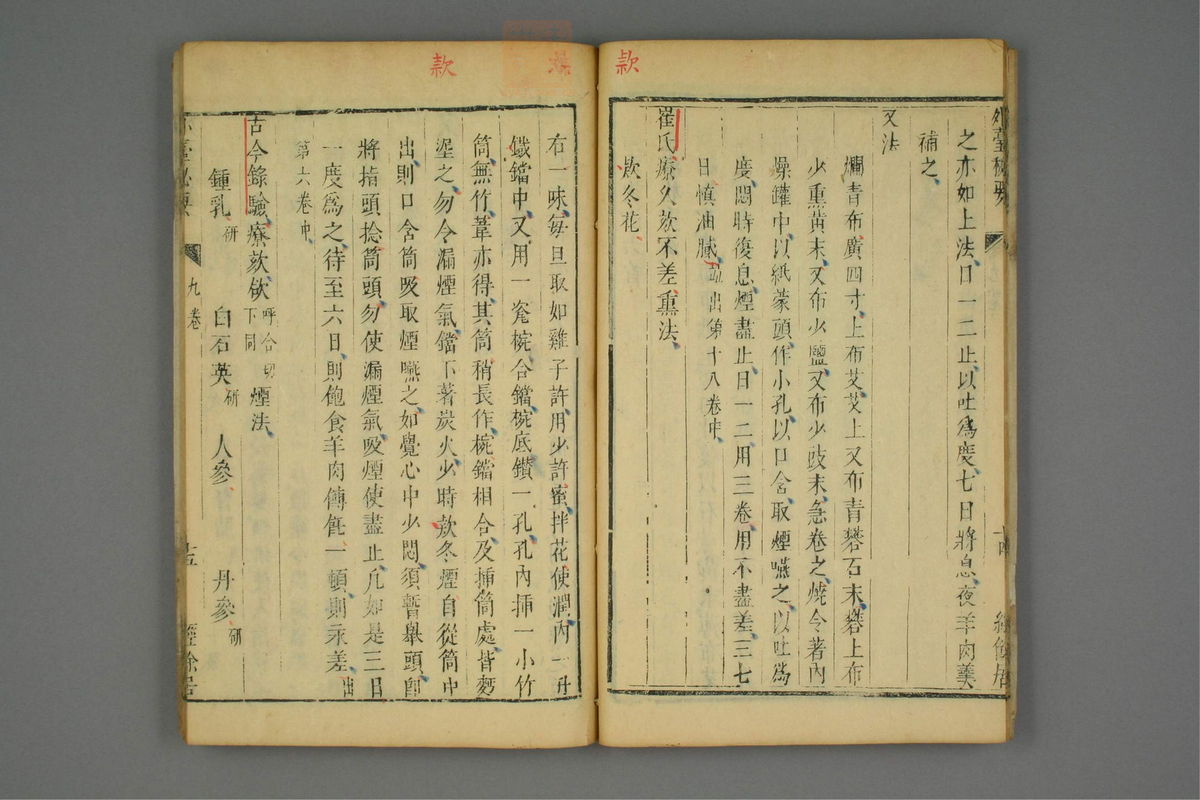 款
外臺秘要
之亦如上法日一二止以吐為度七日將息夜羊肉羹
補之
又法
爛青布廣四寸上布艾艾上又布青礬石末礬上布
少熏黃末又布少鹽又布少豉末急卷之燒令著內
燥罐中以紙蒙頭作小孔以口含取煙嚥之以吐為
度悶時復息煙盡止日一二用三卷用不盡差三七
日慎油膩並出第十八卷中
崔氏療久欬不差熏法
款冬花
十四
經餘居
款
右一味每旦取如雞子許用少許蜜拌花使潤內一升
鐵鐺中又用一瓷椀合鐺椀底鑽一孔孔內插一小竹
筒無竹葦亦得其筒稍長作椀鐺相合及插筒處皆麪
埿之勿令漏煙氣鐺下著炭火少時欵冬煙自從筒中
出則口含筒吸取煙嚥之如覺心中少悶須暫舉頭即
將指頭捻筒頭勿使漏煙氣吸煙使盡止凡如是三日
一度為之待至六日則飽食羊肉餺飥一頓則永差出
第六卷中
古今錄驗療欬欱呼合切下同煙法
鍾乳研 白石英研 人參 丹參研
外臺秘要
九卷
十五
經餘居